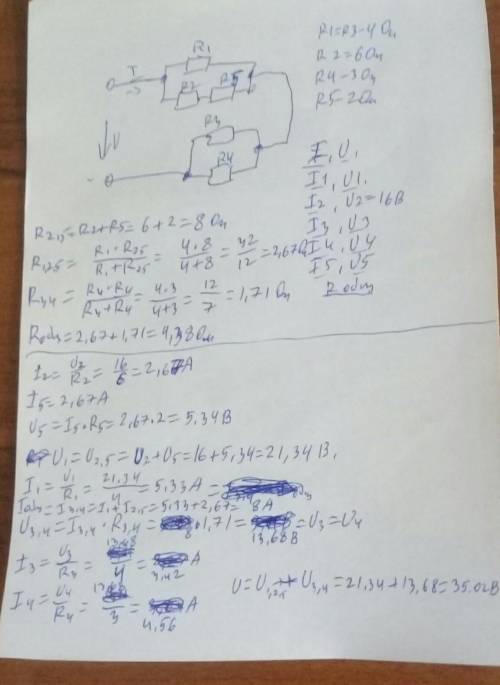 R1=R3-4 Ом
R2=6Ом
R4-3Ом
R5-2Ом
I
R1
R2 R5
R3
R4
U
-
I, U,
I1, U1,
I2, U2=16В
I3, U3
I4, U4
I5, U5
Rобщ
R2,5=R2+R5=6+2=8 Ом
R1,25= R1·R25/R1+R25 = 4·8/4+8 = 32/12 =2,67Ом
R3,4= R4·R4/R4+R4 = 4·3/4+3 = 12/7 =1,71 Ом
Rобщ=2,67+1,71=4,38 Ом
I2= U2/R2 = 16/6 =2,67А
I5=2,67А
U5=I5·R5=2,67·2=5,34В
U1=U2,5=U2+U5=16+5,34=21,34В,
I1= U1/R1 = 21,34/4 =5,33А =
Iобщ=I3,4=I1+I2,5=5,33+2,67= 8А
U3,4=I3,4·R3,4= 8·1,71= 13,68В =U3=U4
I3= U3/R3 = 13,68/4 = 3,42 А
I4= U4/R4 = 13,68/3 = 4,56 А
U=U1,2,5+U3,4=21,34+13,68=35.02В